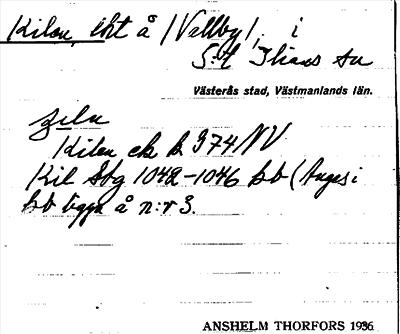 Kilen, lht å /Vallby/, i
S:t Ilians sn
Västerås stad, Västmanlands län.
Kilen ek b 374 NV
Kil Sbg 1042-1046 bb (Anges i
bb ligga å n:r 3.
ANSHELM THORFORS 1936